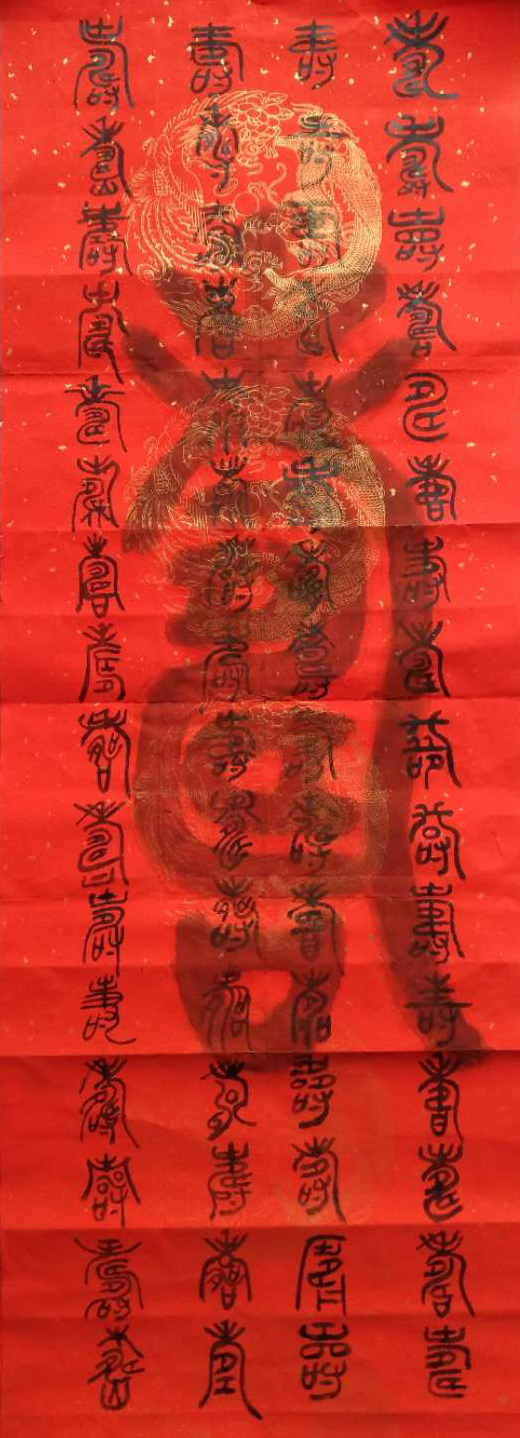 壽壽壽壽壽壽壽壽壽壽壽壽壽壽壽壽
壽壽壽壽壽壽壽壽壽壽壽壽壽壽壽壽
壽壽壽壽壽壽壽壽壽壽壽壽壽壽壽壽
壽壽壽壽壽壽壽壽壽壽壽壽壽壽壽壽
壽